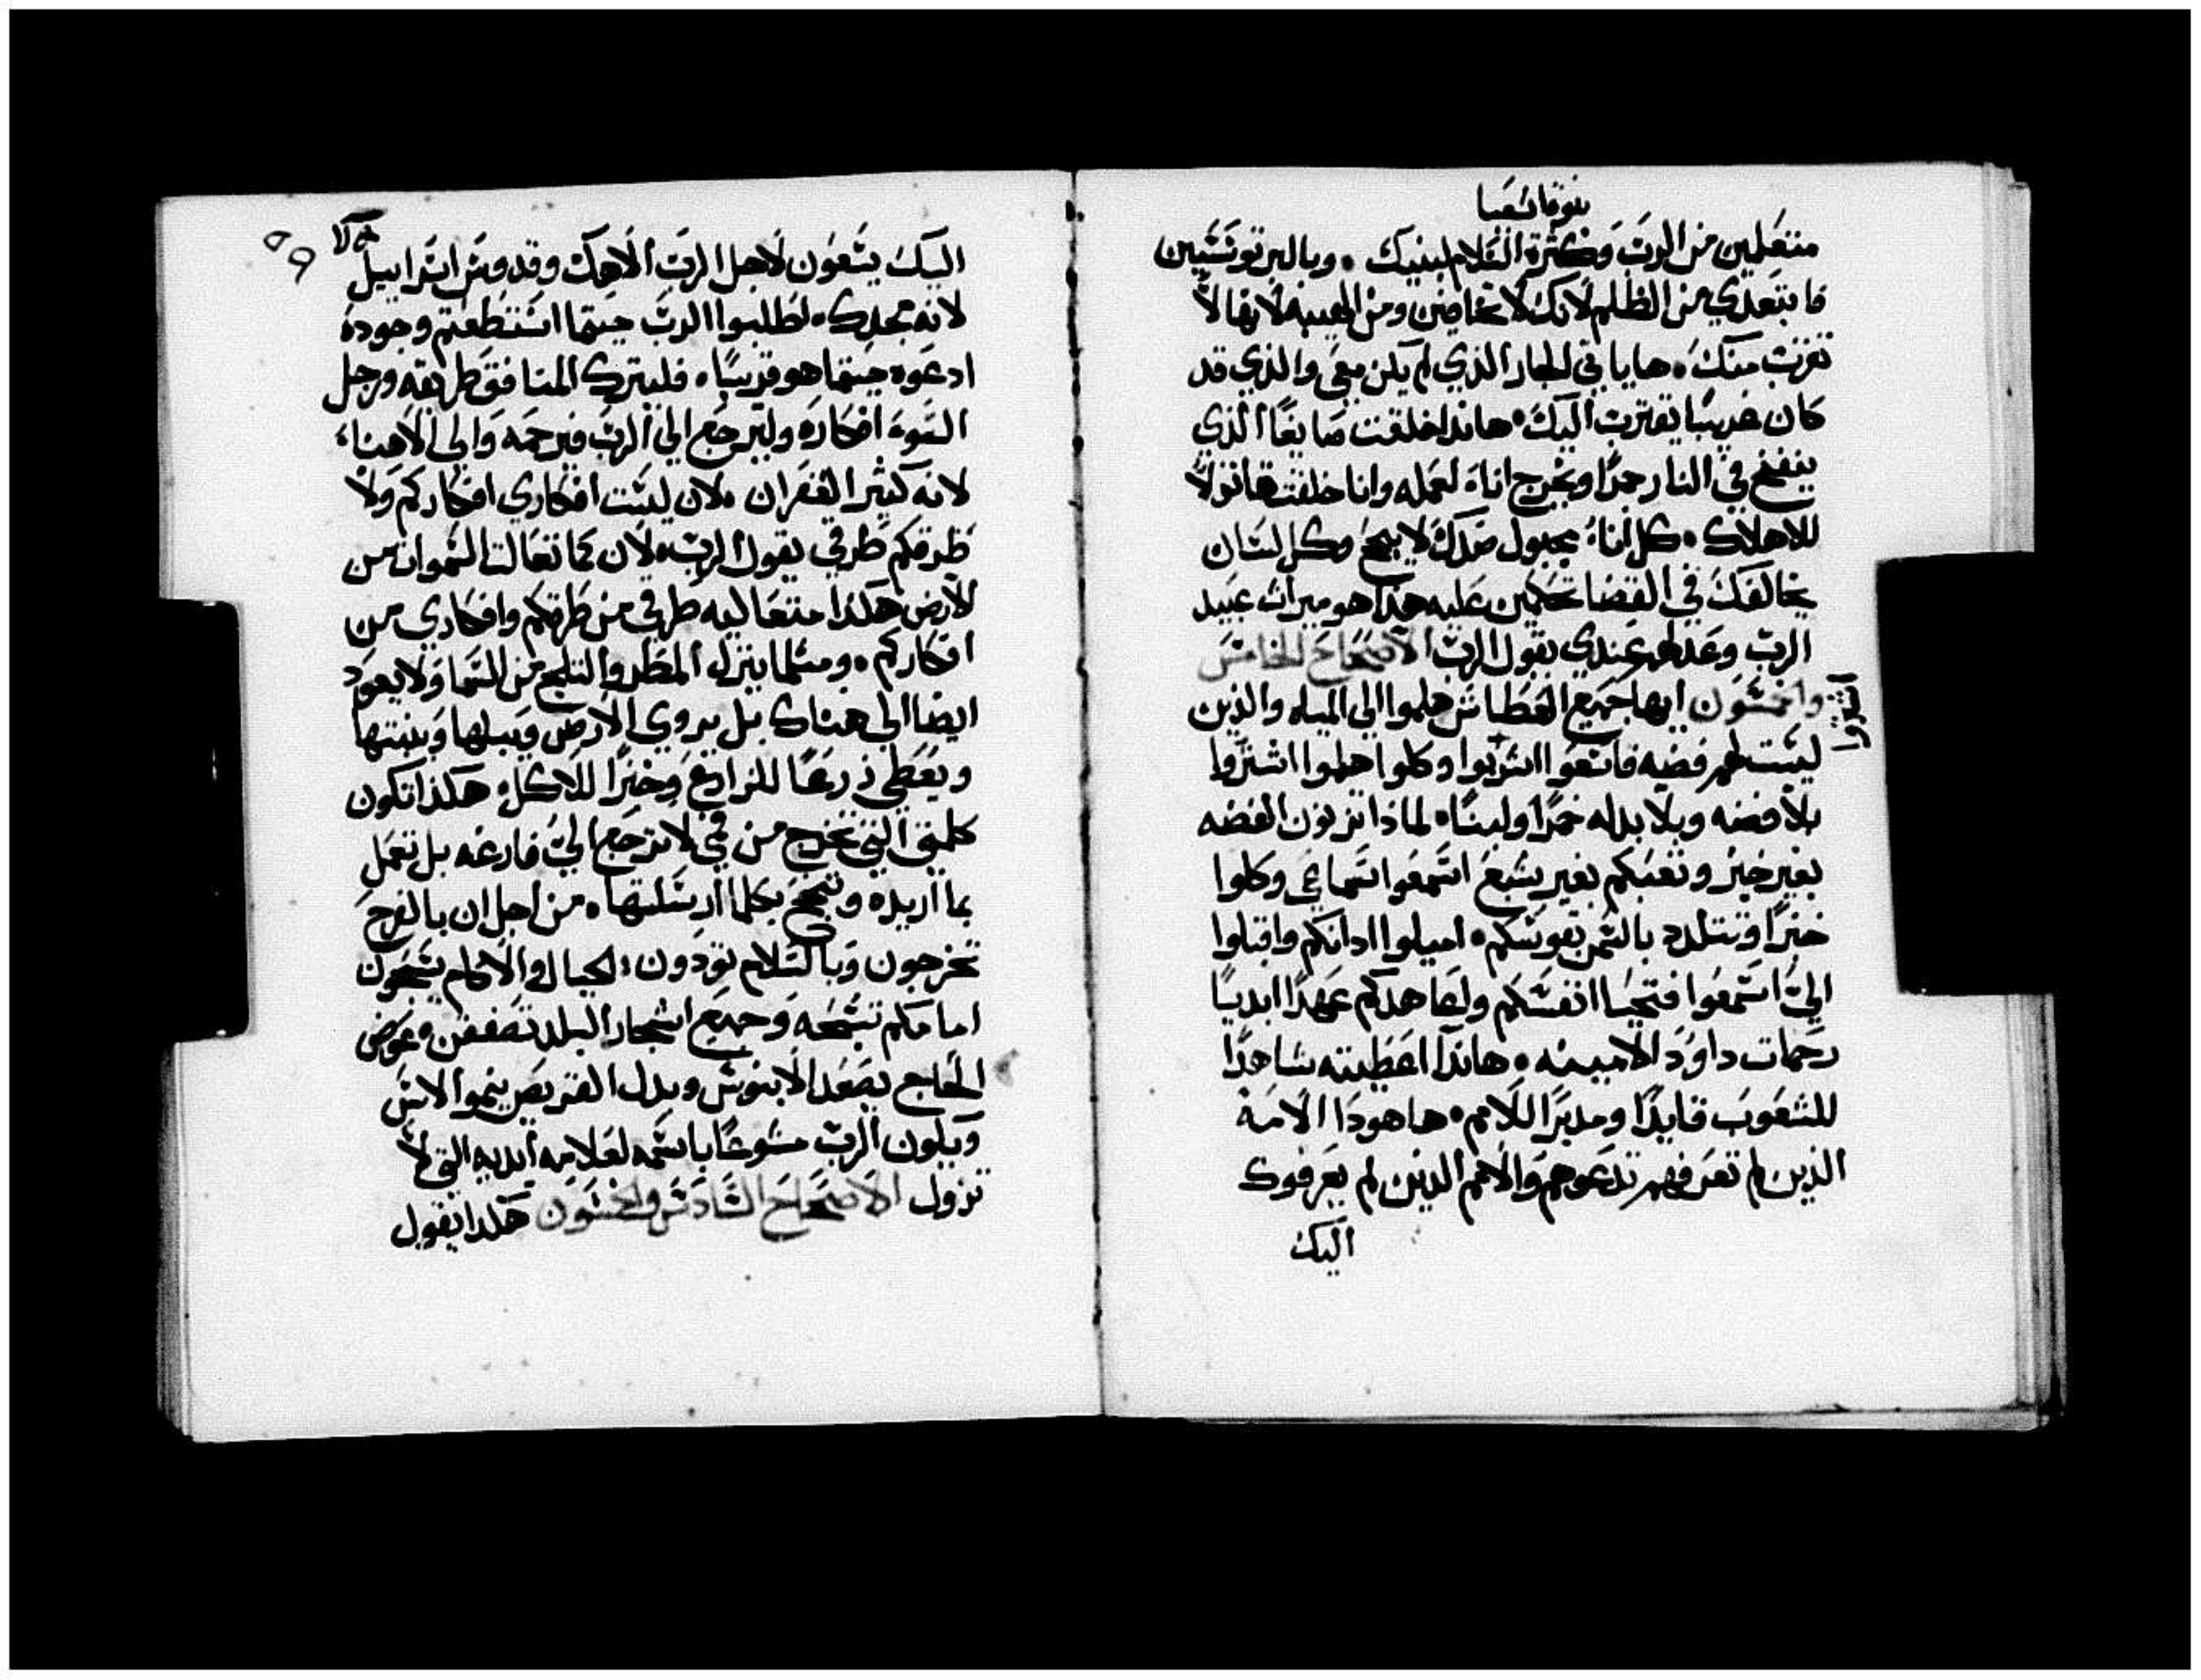 نبوة اشعيا
متعلمين من الرب وكثرة السلام لبنيك ٠ وبالبر توسسين
فابتعدي من الظلم لانك لا تخافين ومن الهيبه لانها لا
تقترب منك ٠ ها ياتي الجار الذي لم يكن معي والذي قد
كان غريبا يقترب اليك ٠ هانذا خلقت صايغا الذي
ينفخ في النار جمرا ويخرج اناء لعمله وانا خلقت قاتولا
للاهلاك ٠ كل اناء مجبول ضدك لا ينجح وكل لسان
يخالفك في القضا تحكمين عليه هذا هو ميراث عبيد
الرب وعدلهم عندي يقول الرب الاصحاح الخامس
والخمسون ايها جميع العطاش هلموا الي المياه والذين
ليست لهم فضه فاسعوا اشتروا وكلوا هلموا اشتروا
بلا فضه وبلا بدله خمرا ولبنا ٠ لماذا تزنون الفضه
بغير خبز وتعبكم بغير شبع استمعوا استماعي وكلوا
خبزا وتتلدد بالسمن نفوسكم ٠ اميلوا اذانكم واقبلوا
الي استمعوا فتحيا انفسكم واعاهدكم عهدا ابديا
رحمات داود الامينه ٠ هانذا اعطيته شاهدا
للشعوب قايدا ومدبرا للامم ٠ ها هوذا الامه
الذين لم تعرفهم تدعوهم والامم الذين لم يعرفوك
اليك
اليك يسعون لاجل الرب الاهك وقدوس اسراييل
لانه مجدك ٠ اطلبوا الرب حيتما استطعتم وجوده
ادعوه حيتما هو قريبا ٠ فليترك المنافق طريقه ورجل
السوء افكاره وليرجع الي الرب فيرحمه والي الاهنا
لانه كثير الغفران ٠ لان ليست افكاري افكاركم ولا
طرقكم طرقي يقول الرب ٠ لان كما تعالت السموات من
الارض هكذا متعاليه طرقي من طرقكم وافكاري من
افكاركم ٠ ومتلما ينزل المطر والتلج من السما ولا يعود
ايضا الي هناك بل يروي الارض ويبلها وينبتها
ويعطي زرعا للزارع وخبزا للاكل ٠ هكذا تكون
كلمتي التي تخرج من في لا ترجع الي فارغه بل تعمل
بما اريده وتنجح بكلما ارسلتها ٠ من اجل ان بالفرح
تخرجون وبالسلام تودون ٠ الجبال والاكام يسبحون
امامكم تسبحه وجميع اشجار البلد تصفقن وعوض
الحاج يصعد الابنوس وبدل القريص ينمو الاس
ويكون الرب مسوعا باسمه لعلامه ابديه التي لا
تزول الاصحاح السادس والخمسون هكذا يقول